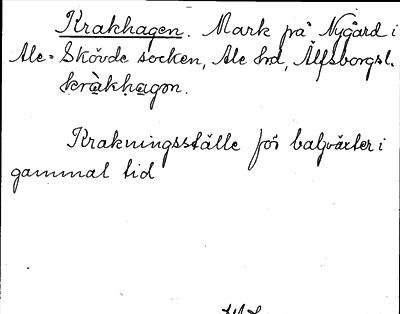 Krakhagen. Mark på Nygård i
Ale-Skövde socken, Ale hd, Älfsborgs l.
kràkhagən.
Krakningsställe för baljväxter i
gammal tid